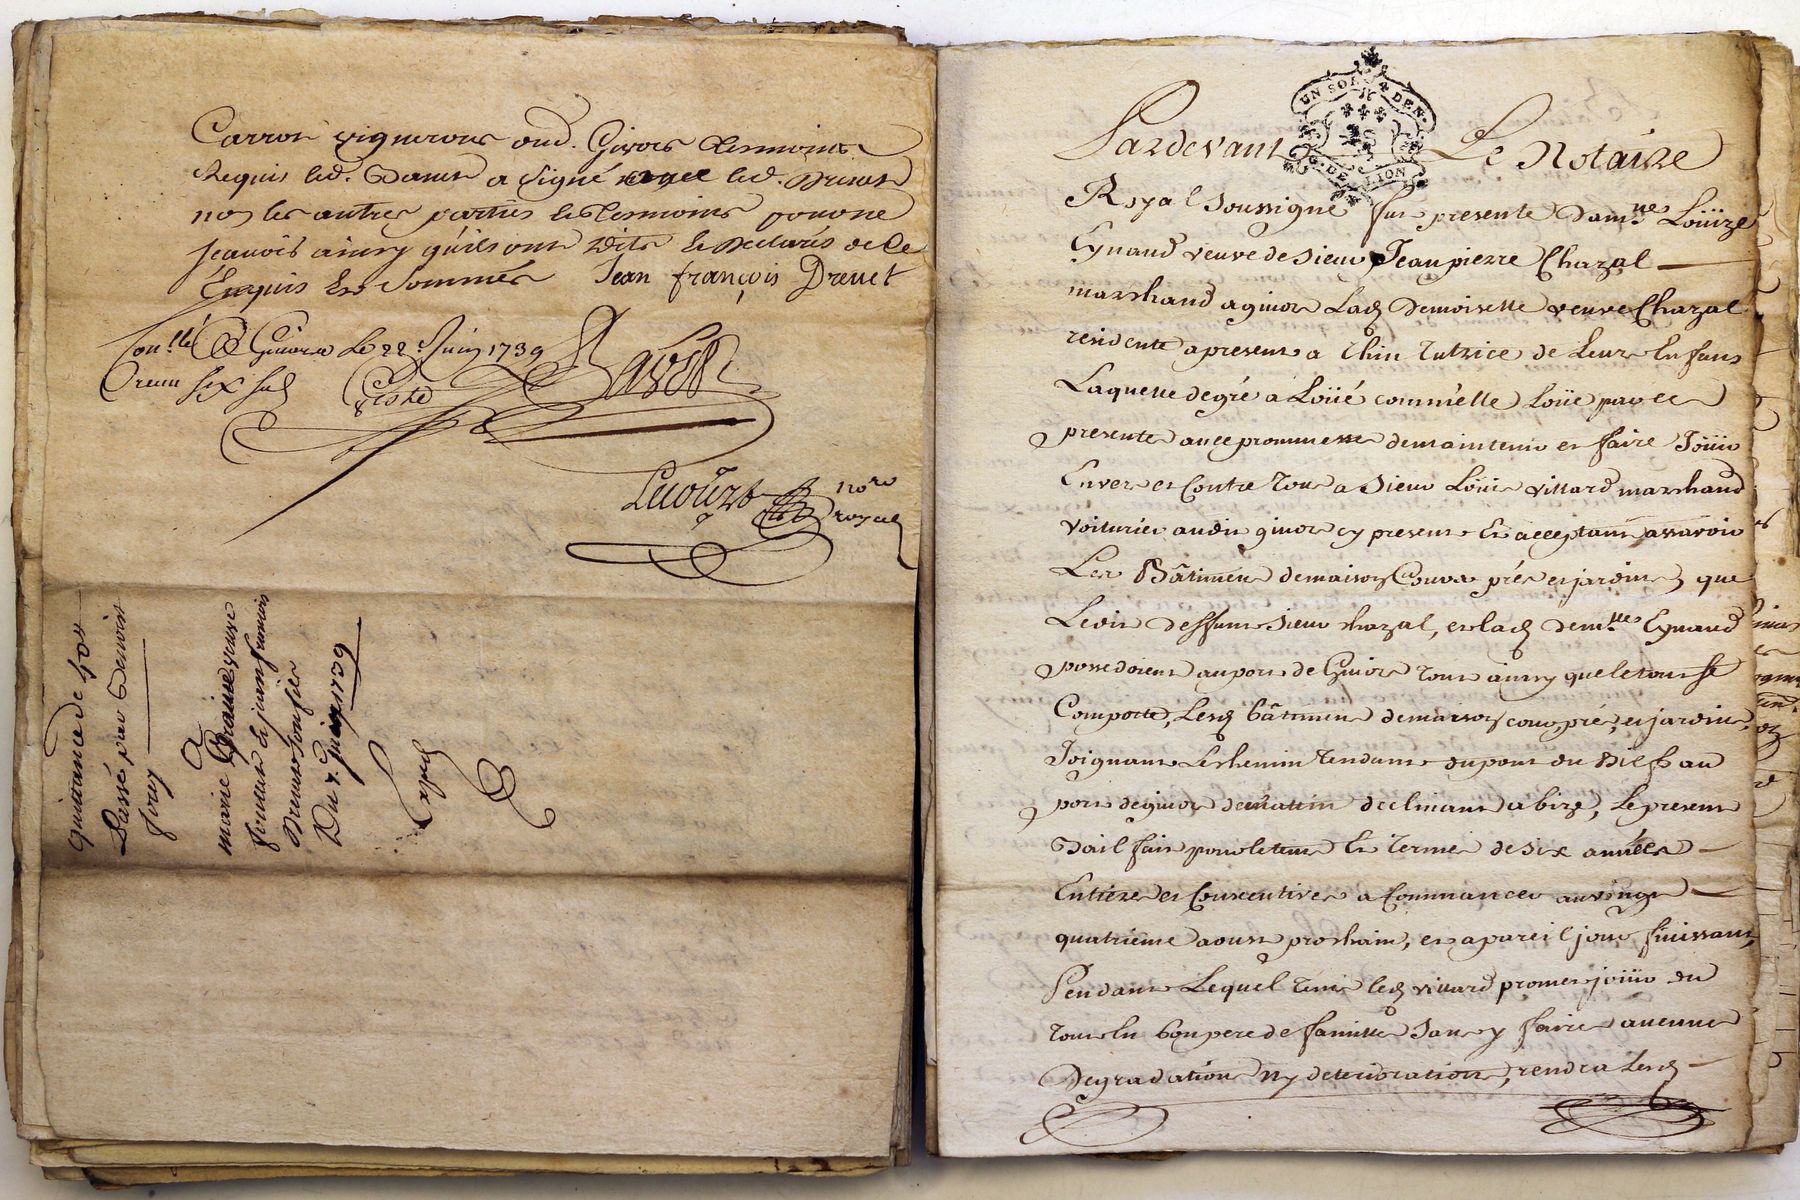 Carron vignerons aud. Givors tesmoins
Requis led. Benoit a signé avec led. Drevet
non les autres parties les tesmoins pour ne
sçavoir ainsy qu'ils ont dit et declaré de ce
Enquis et sommés Jean françois Drevet
Con.llé à Givors le 22.e Juin 1739
Receu six sols
Lecourt no.re
royal
quittance de 40#
Passé par Benoist
A
marie veuve
et jean françois
Drevet son fils
Du 7. Juin 1739
Exped
UN SOL DEN.
G. DE LION
Pardevant Le Notaire
Royal soussigné fut presente Dam.lle Loüize
Eynard veuve de sieur Jean pierre Chazal
marchand a givors Lad Demoiselle veuve Chazal
residente a present a Thin tutrice de leurs Enfans
Laquelle de gré a Loüé comm'elle Loüe par ces
presentes avec prommesse de maintenir et faire Joüir
Envers et Contre tous a Sieur Loüis villard marchand
voiturier audit givors cy present Et acceptant assavoir
Les Bâtimens de maison Cour prés et jardins que
Ledit deffunt sieur chazal, et lad dem.lle Eynard
possedoient au port de Givors tout ainsy que le tout se
Comporte, Lesd bâtimens de maison cour, pré, et jardin,
Joignant Le chemin tendant du pont du Bief au
port de givors de matin declinant a bize, Le present
Bail fait pour le tems Et terme de six années
Entieres et Consecutives a Commancer au vingt
quatrieme aoust prochain, et a pareil jour finissant,
Pendant Lequel tems led villard promet joüir du
tout En bon pere de famille sans y faire aucunes
Degradations ny deteriorations, rendra Lesd